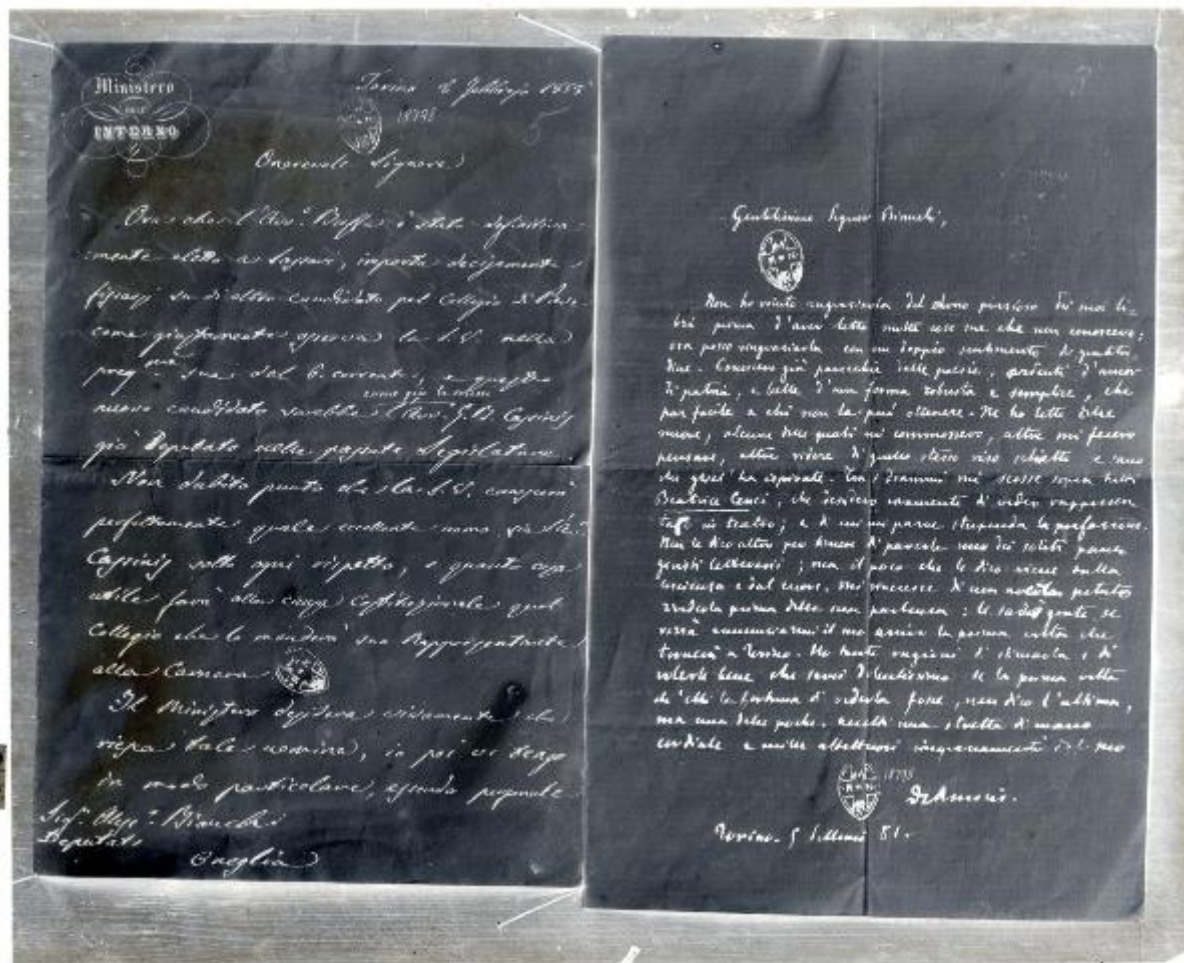 Ministero
DELL'
INTERNO
Torino 8 Febbraio 1855
18793
Onorevole Signore
Ora che l'Avv.o Buffa è stato definitiva-
mente eletto a Sassari, importa decisamente
su di altro candidato pel Collegio
come giustamente la S.V. nella
sua del 6. corrente, e questo
come già la
nuovo candidato sarebbe l'Avv. G.B. Cassinis
già Deputato nella passata Legislatura.
Non dubito punto che la S.V.
perfettamente quale eccellente uomo sia
Cassinis sotto ogni rispetto, e quanto cosa
utile farà alla causa Costituzionale quel
Collegio che lo manderà suo Rappresentante
alla Camera.
Il Ministero desidera vivamente che
riesca tale nomina, io poi ci tengo
in modo particolare, essendo
Sig. Bianchi
Deputato
Oneglia
Gentilissimo Signor Bianchi,
Non ho voluto ringraziarla del dono prezioso dei suoi li-
bri prima d'aver letto molte cose sue che non conoscevo;
ora posso ringraziarla con un doppio sentimento di gratitu-
dine. Conoscevo già parecchie delle poesie, ardenti d'amor
di patria, e belle d'una forma robusta e semplice, che
par facile a chi non la può ottenere. Ne ho lette altre
nuove, alcune delle quali mi commossero, altre mi fecero
pensare, altre ridere di quello stesso riso schietto e sano
che gliel'ha ispirate. Tra i Drammi mi scosse sopra tutti
Beatrice Cenci, che desidero veramente di veder rappresen-
tata in teatro; e di cui mi parve stupenda la prefazione.
Non le dico altro per timore di parerle uno dei soliti
letterarii; ma il poco che le dico viene dalla
coscienza e dal cuore. Mi rincresce di non poter
vederla prima della sua partenza: le sarò grato, se
vorrà annunciarmi il suo arrivo la prima volta che
tornerà a Torino. Ho tante ragioni di stimarla e di
volerle bene che sarei dolentissimo se la prima volta
ch'ebbi la fortuna di vederla fosse, non dico l'ultima,
ma una delle poche. Accetti una stretta di mano
cordiale e mille affettuosi ringraziamenti dal suo
18793
De Amicis.
Torino - 5 81.